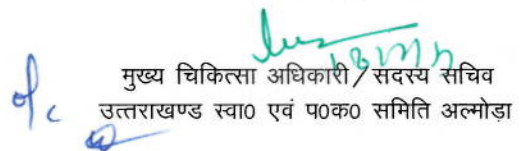 मुख्य चिकित्सा अधिकारी / सदस्य सचिव
o/c उत्तराखण्ड स्वा0 एवं प0क0 समिति अल्मोड़ा